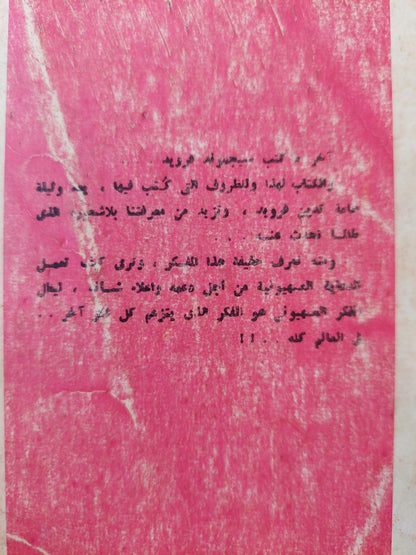 آخر ما كتب سيجموند فرويد . . .
والكتاب لهذا وللظروف التى كُتب فيها ، يعد وثيقة
هامة تدين فرويد ، وتزيد من معرفتنا بلاشعوره الذى
طالما تحدث عنه . . . .
ومنه نعرف حقيقة هذا المفكر ، ونرى كيف تعمل
الدعاية الصهيونية من أجل دعمه واعلاء شأنه ، ليقال
الفكر الصهيونى هو الفكر الذى يتزعم كل فكر آخر . .
فى العالم كله . . . ! !